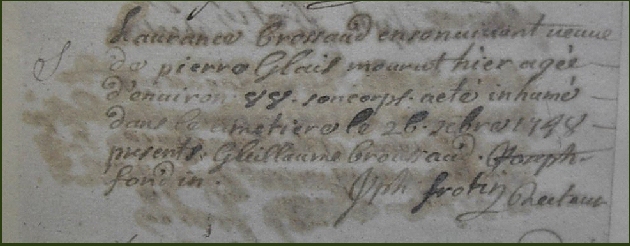 S
Laurance brossaud en son vivant veuve
de pierre Glais mourut hier agée
d'environ 88. son corps. a eté inhumé
dans le cimetiere le 26. xbre 1748
presents. Gleillaume broussaud. Joseph
fondin. Jph frotin Recteur